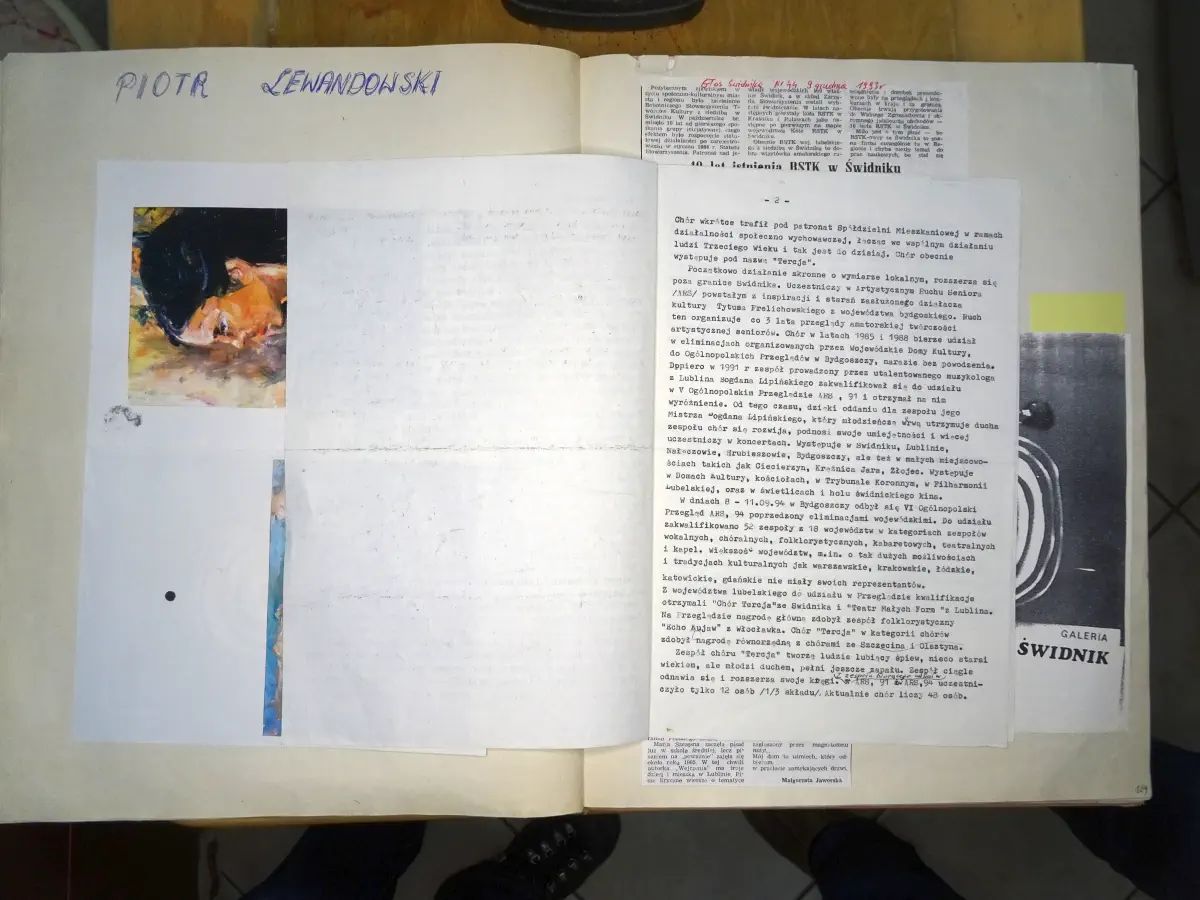 PIOTR LEWANDOWSKI
Głos Świdnika Nr 44 9 grudnia 1993 r
10 lat istnienia RSTK w Świdniku
- 2 -
Chór wkrótce trafił pod patronat Spółdzielni Mieszkaniowej w ramach
działalności społeczno wychowawczej, łącząc we wspólnym działaniu
ludzi Trzeciego Wieku i tak jest do dzisiaj. Chór obecnie
występuje pod nazwą "Tercja".
Początkowo działanie skromne o wymiarze lokalnym, rozszerza się
poza granice Świdnika. Uczestniczy w Artystycznym Ruchu Seniora
/ARS/ powstałym z inspiracji i starań zasłużonego działacza
kultury Tytusa Frelichowskiego z województwa bydgoskiego. Ruch
ten organizuje co 3 lata przeglądy amatorskiej twórczości
artystycznej seniorów. Chór w latach 1985 i 1988 bierze udział
w eliminacjach organizowanych przez Wojewódzkie Domy Kultury,
do Ogólnopolskich Przeglądów w Bydgoszczy, narazie bez powodzenia.
Dppiero w 1991 r zespół prowadzony przez utalentowanego muzykologa
z Lublina Bogdana Lipińskiego zakwalifikował się do udziału
w V Ogólnopolskim Przeglądzie ARS , 91 i otrzymał na nim
wyróżnienie. Od tego czasu, dzięki oddaniu dla zespołu jego
Mistrza Bogdana Lipińskiego, który młodzieńczą werwą utrzymuje ducha
zespołu chór się rozwija, podnosi swoje umiejętności i więcej
uczestniczy w koncertach. Występuje w Świdniku, Lublinie,
Nałęczowie, Hrubieszowie, Bydgoszczy, ale też w małych miejscowo-
ściach takich jak Ciecierzyn, Krężnica Jara, Złojec. Występuje
w Domach Kultury, kościołach, w Trybunale Koronnym, w Filharmonii
Lubelskiej, oraz w świetlicach i holu świdnickiego kina.
W dniach 8 - 11.09.94 w Bydgoszczy odbył się VI Ogólnopolski
Przegląd ARS, 94 poprzedzony eliminacjami wojewódzkimi. Do udziału
zakwalifikowano 52 zespoły z 18 województw w kategoriach zespołów
wokalnych, chóralnych, folklorystycznych, kabaretowych, teatralnych
i kapel. Większość województw, m.in. o tak dużych możliwościach
i tradycjach kulturalnych jak warszawskie, krakowskie, łódzkie,
katowickie, gdańskie nie miały swoich reprezentantów.
Z województwa lubelskiego do udziału w Przeglądzie kwalifikacje
otrzymali "Chór Tercja"ze Świdnika i "Teatr Małych Form "z Lublina.
Na Przeglądzie nagrodę główną zdobył zespół folklorystyczny
"Echo Kujaw" z Włocławka. Chór "Tercja" w kategorii chórów
zdobył nagrodę równorzędną z chórami ze Szczecina i Olsztyna.
Zespół chóru "Tercja" tworzą ludzie lubiący śpiew, nieco starsi
wiekiem, ale młodzi duchem, pełni jeszcze zapału. Zespół ciągle
odnawia się i rozszerza swoje kręgi. W ARS, 91 i ARS,94 uczestni-
czyło tylko 12 osób /1/3 składu/. Aktualnie chór liczy 48 osób.
GALERIA
ŚWIDNIK
Małgorzata Jaworska